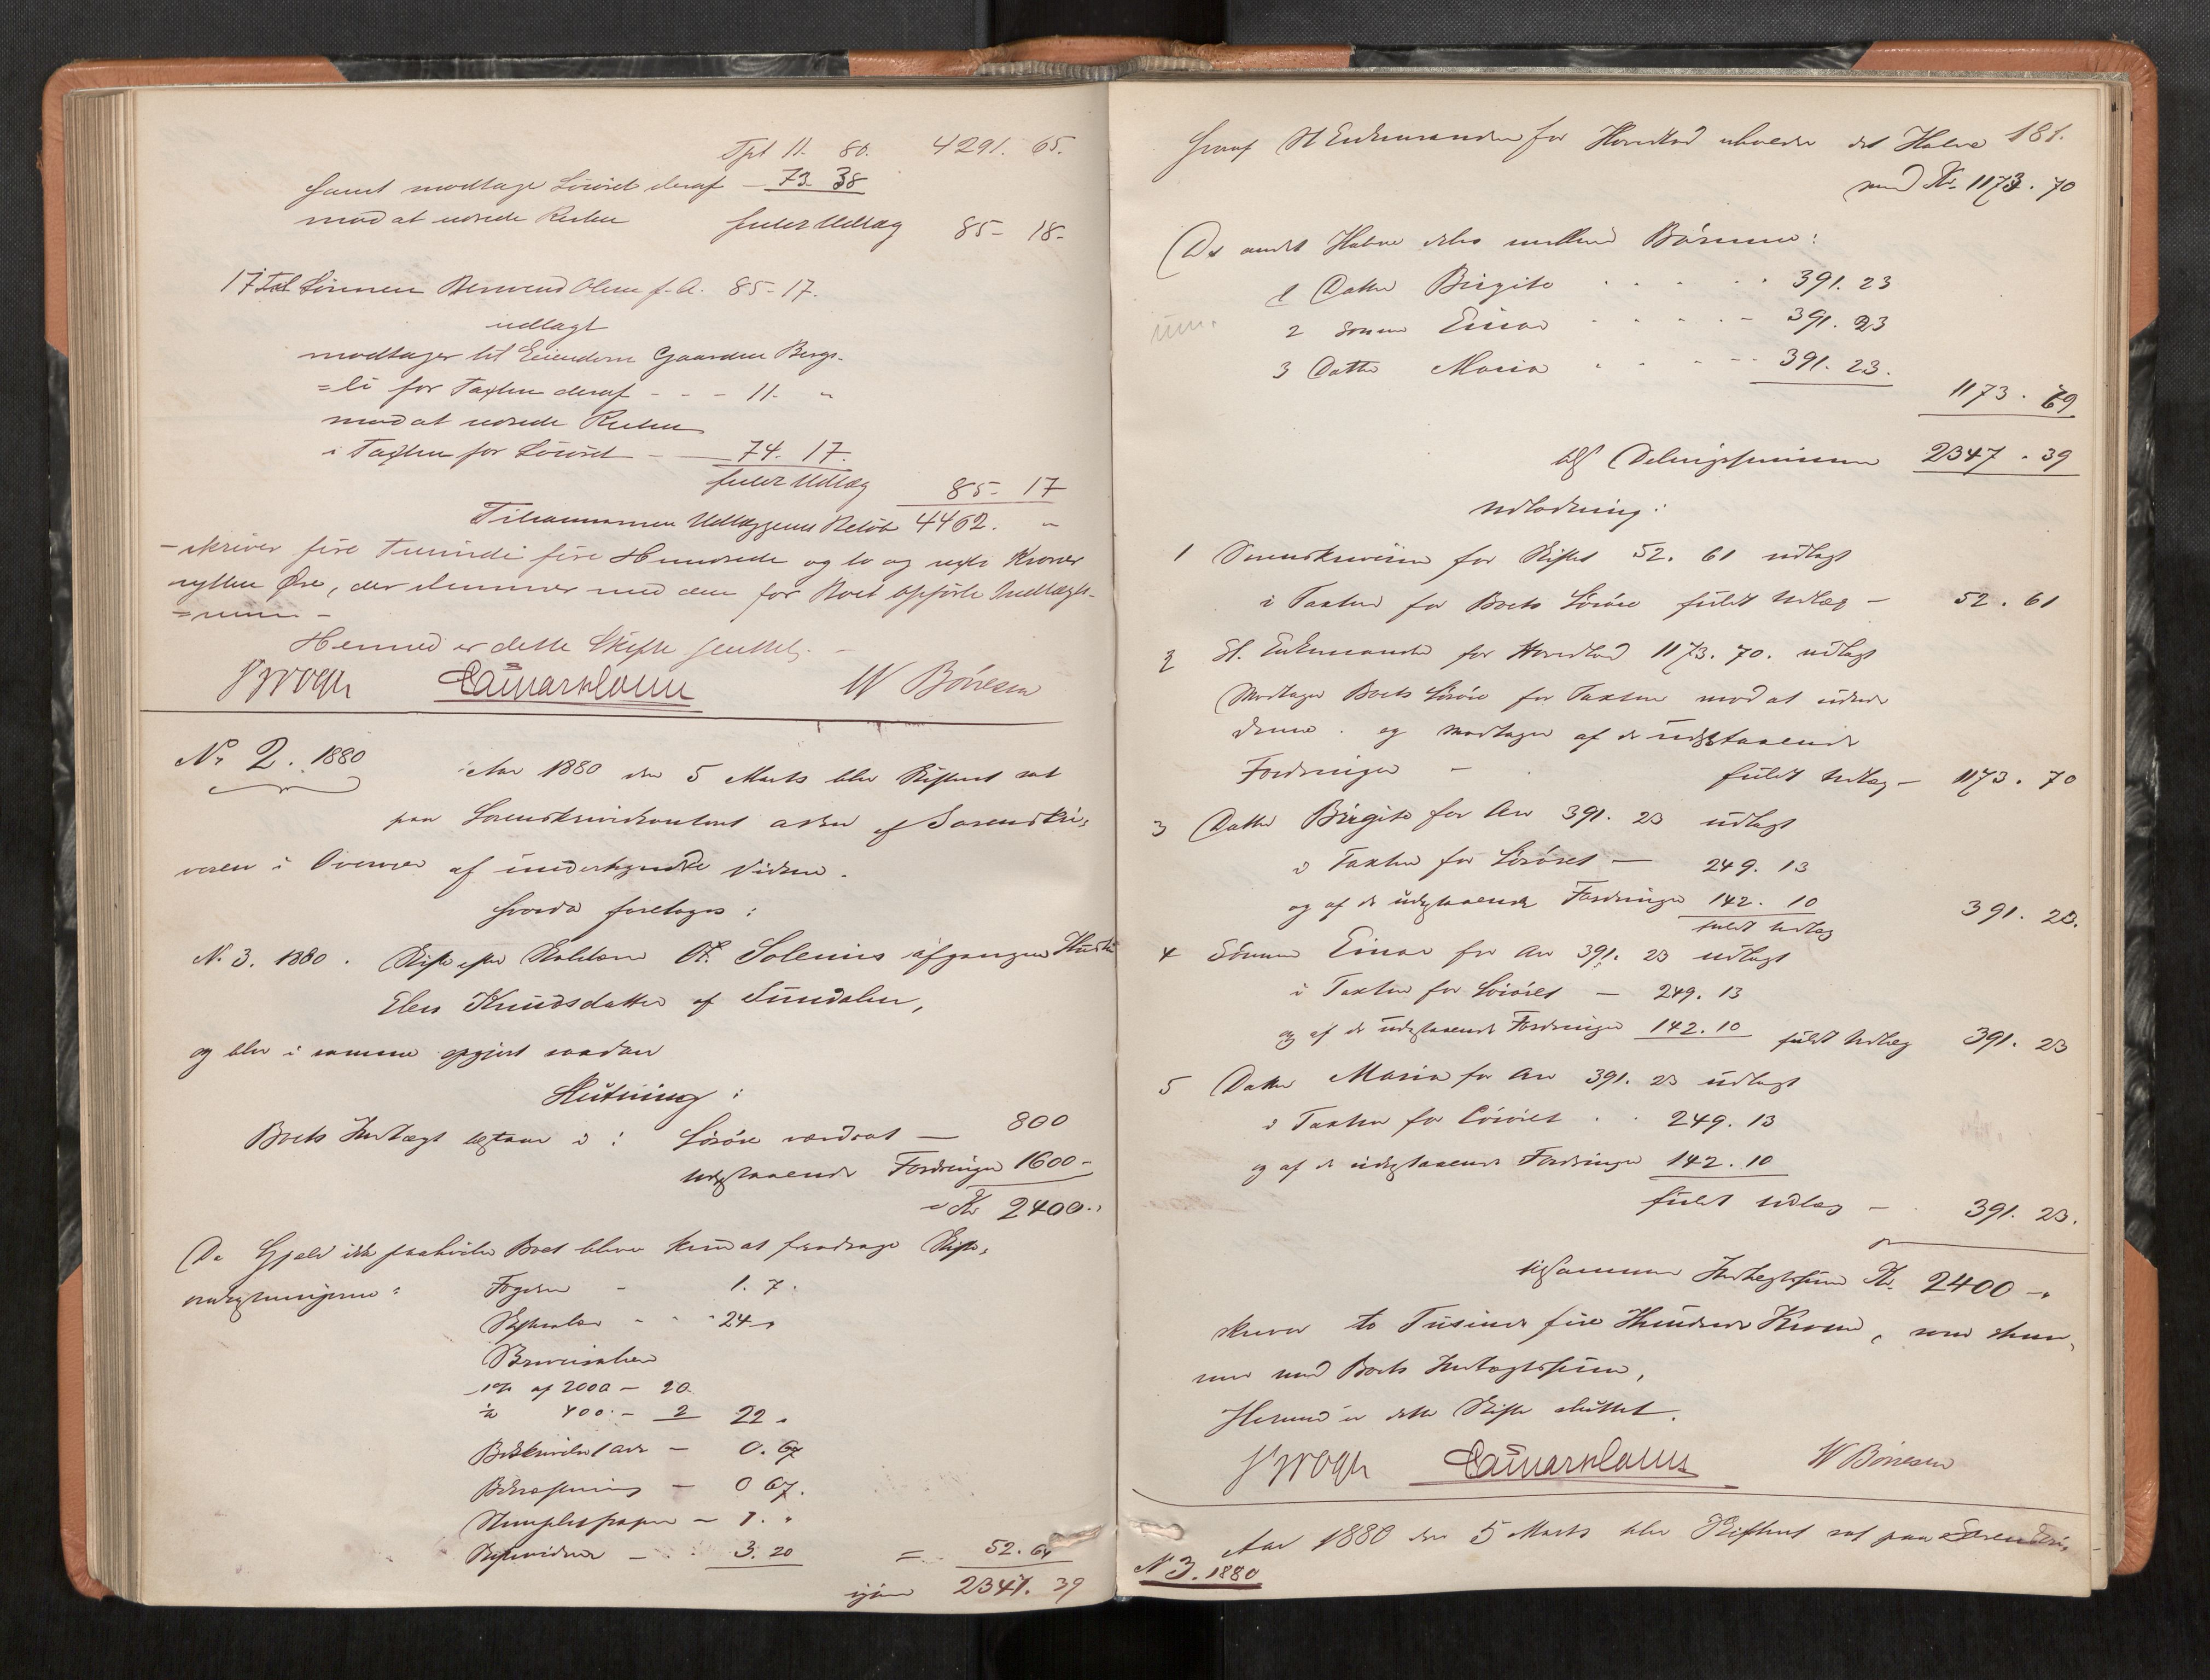 Tpt 11. 80. 4291. 65.
samt modtage Løsøret deraf — 73. 38
mod at udrede Resten fuldt Udlæg 85 - 18 -
17 Til Sønnen Berwend Olsen f. A. 85 - 17.
udlagt
modtager til Eiendom Gaarden Bergs-
=li for Taxten deraf - - - 11. "
mod at udrede Resten
i Taxten for Løsøret — 74. 17.
fuldt Udlæg 85 - 17
Tilsammen Udlæggenes Beløb 4462. "
- skriver fire Tusinde fire Hundrede og to og sexti Kroner
nytten Øre, der stemmer med den for Boet opførte Indtægts-
=sum -
Hermed er dette Skifte sluttet. -
W Børresen
No 2. 1880
Aar 1880 den 5 Marts blev Skifteret sat
paa Sorenskriverkontoret af Sorenskri-
veren i Overvær af undertegnede Vidner.
Hvorda foretoges:
N. 3. 1880. Skifte efter Ot. Solemis afgangne Hustru
Elen Knudsdatter af Sundalen,
og blev i samme opgjort saadan
Slutning:
Boets Indtægt bestaar i: Løsøre værdsat — 800
Udestaaende Fordringer 1600 -
= Kr 2400.
Da Gjæld ikke paahviler Boet bliver kun at fradrage Skifte-
omkostningerne: Fogden - 1. 7.
Skiftesalær - - 24 "
1% af 2000 — 20
½ 400 — 2 22 "
Beskrivelse — 0. 67
— 0 67.
Stemplet papir — 1. "
Skiftevidner — 3. 20 = 52. 61
igjen 2347. 39
181.
Hvoraf St Enkemanden for Hovedlod erholder det Halve
med Kr. 1173. 70
Det andet Halve deles mellem Børnene:
1 Datter Birgite . . . . . 391. 23
2 Sønnen Einar - - - - 391. 23
3 Datter Maria . . . -- 391. 23.
1173. 69
tils Delingssummen 2347. 39
Udlodning:
1 Sorenskriveren for Skiftet 52. 61 udlagt
i Taxten for Boets Løsøre fuldt Udlæg — 52. 61
2 St. Enkemanden for Hovedlod 1173. 70. udlagt
Modtager Boets Løsøre for Taxten mod at udrede
denne. og modtager af de udestaaende
Fordringer — fuldt Udlæg — 1173. 70
3 Datter Birgite for Arv 391. 23 udlagt
i Taxten for Løsøret — 249. 13
og af de udestaaende Fordringer 142. 10
fuldt Udlæg 391. 23.
4 Sønnen Einar for Arv 391. 23 udlagt
i Taxten for Løsøret — 249. 13
og af de udestaaende Fordringer 142. 10 fuldt Udlæg 391. 23
5 Datter Maria for Arv 391. 23 udlagt
i Taxten for Løsøret . . 249. 13
og af de udestaaende Fordringer 142. 10
fuldt Udlæg — 391. 23.
tilsammen Indtægtssum Kr. 2400 -"
skriver to Tusinde fire Hundrede Kroner, som stem-
mer med Boets Indtægtssum.
Hermed er dette Skifte sluttet.
W Børresen
Aar 1880 den 5 Marts blev Skifteret sat paa Sorenskri-
N 3. 1880